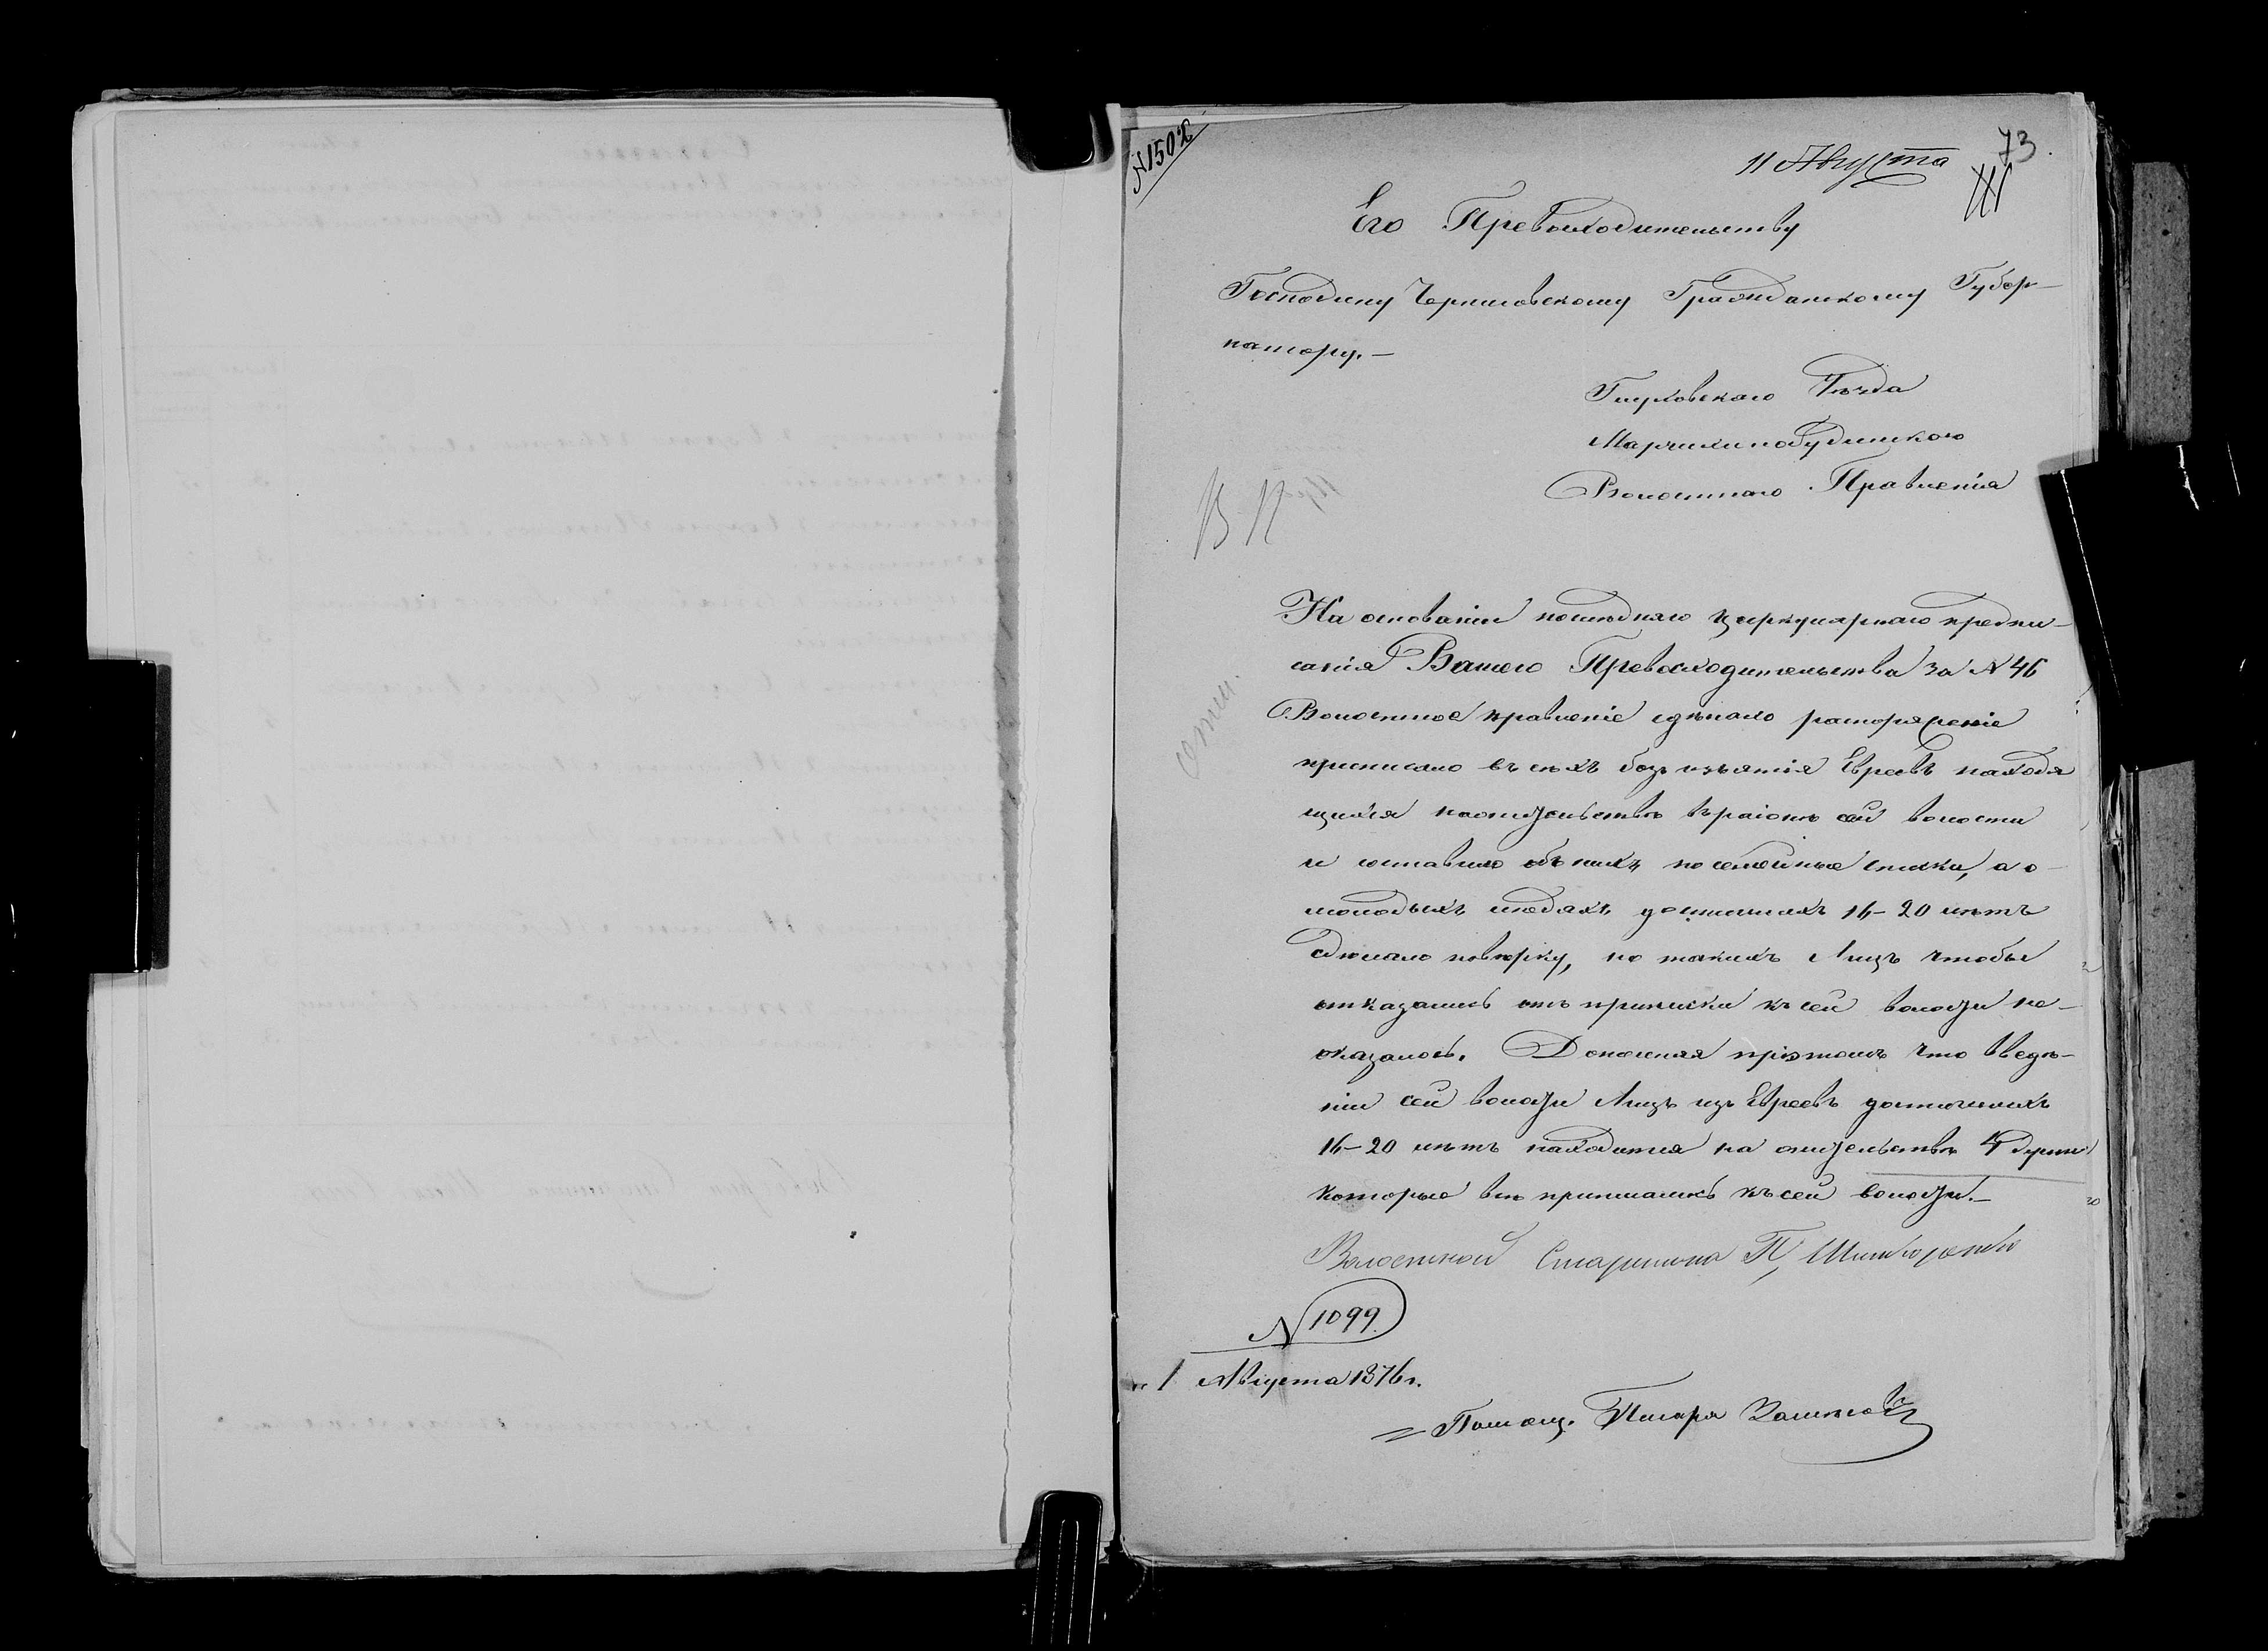 № 1502
11 Августа
73.
Его Превосходительству
Господину Черниговскому Гражданскому Губер-
натору.-
Глуховского Уѣзда
Марчихинобудинского
Волостного Правленія
На основаніи послѣдняго циркулярного предпи-
санія Вашего Превосходительства за № 46
Волостное правленіе сдѣлало распоряженіе
приписало всѣхъ безъ изъятія Евреевъ находя
щихся нажительствѣ врайонѣ сей волости
и составило объ нихъ посемейные списки, а о-
молодыхъ людяхъ достигшихъ 16-20 лѣтъ
сдѣлало повѣрку, но такихъ Лицъ чтобы
отказались отъ приписки къ сей волости не-
оказалось. Донося приэтомъ что ввѣдѣ-
ніи сей волости Лицъ изъ Евреевъ достигшихъ
16-20 лѣтъ находится на жительствѣ 4 души
которые всѣ приписались къ сей волости.-
Волостной Старшина П,
№ 1099.
1 Августа 1876 г.
Помощ. Писаря